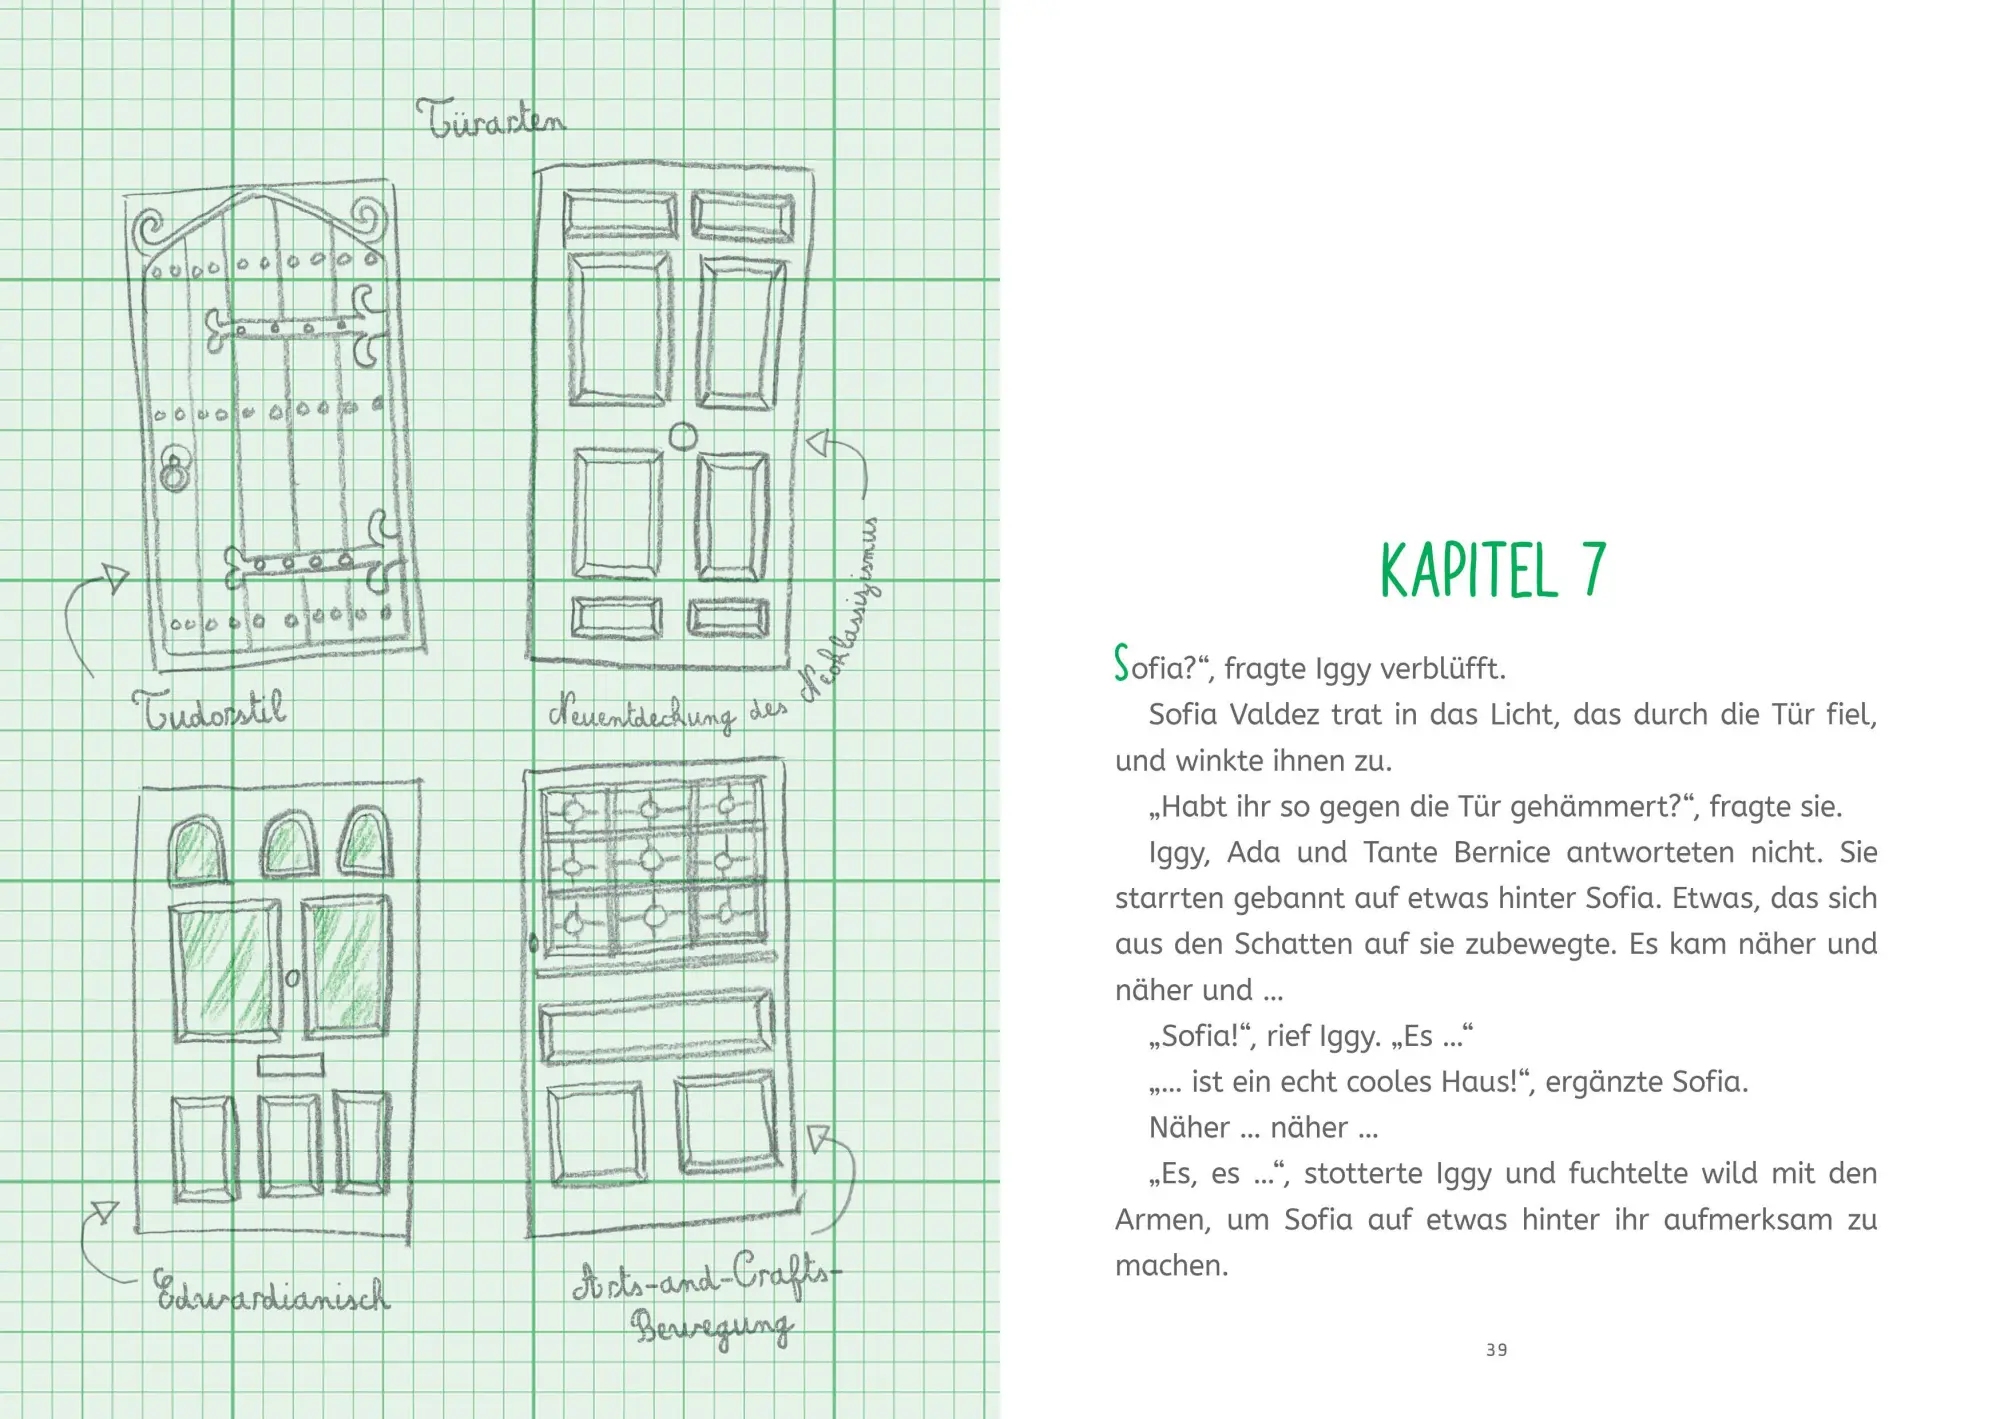 Türarten
Tudorstil
Neuentdeckung des Neoklassizismus
Edwardianisch
Arts-and-Crafts-
Bewegung
KAPITEL 7
Sofia?“, fragte Iggy verblüfft.
Sofia Valdez trat in das Licht, das durch die Tür fiel,
und winkte ihnen zu.
„Habt ihr so gegen die Tür gehämmert?“, fragte sie.
Iggy, Ada und Tante Bernice antworteten nicht. Sie
starrten gebannt auf etwas hinter Sofia. Etwas, das sich
aus den Schatten auf sie zubewegte. Es kam näher und
näher und ...
„Sofia!“, rief Iggy. „Es ...“
„... ist ein echt cooles Haus!“, ergänzte Sofia.
Näher ... näher ...
„Es, es ...“, stotterte Iggy und fuchtelte wild mit den
Armen, um Sofia auf etwas hinter ihr aufmerksam zu
machen.
39